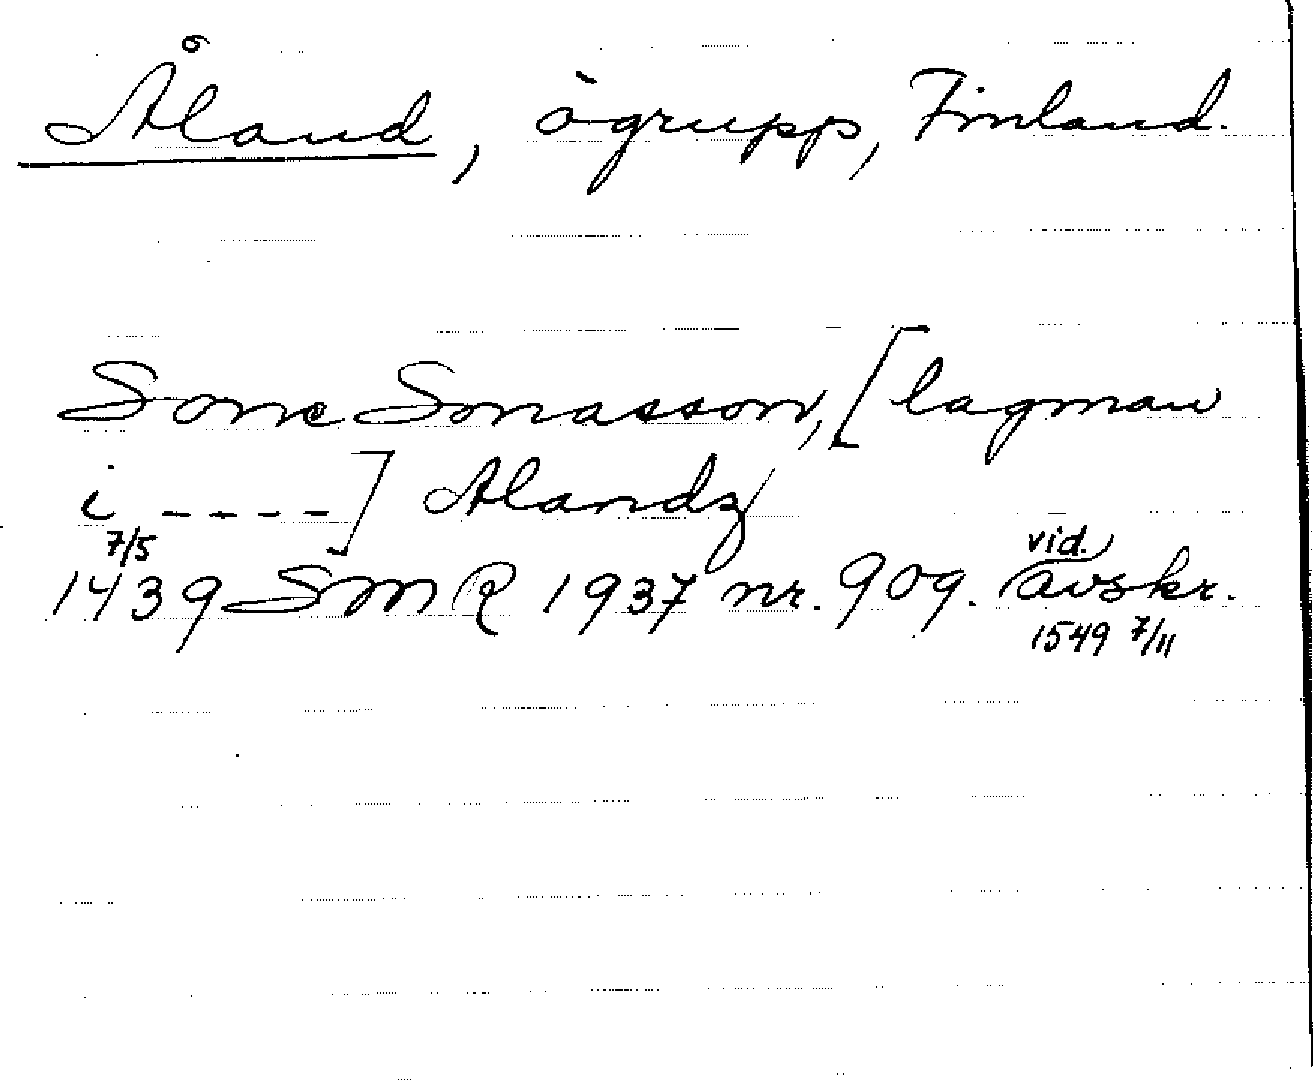 Åland, ögrupp, Finland.
Sone Sonasson, [lagman
i ----] Alandz
7/5 vid.
1439 SMR 1937 nr. 909. avskr.
1549 7/11